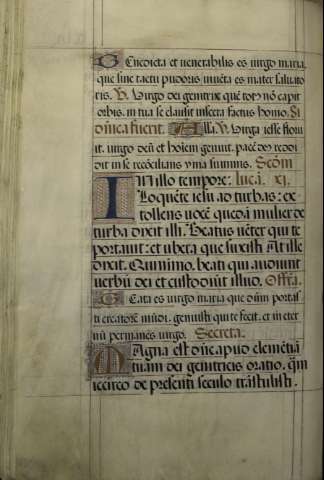 Benedicta et venerabilis es virgo maria,
que sine tactu pudoris inuēta es mater saluato
ris. V. Virgo dei genitrix quē totꝰ nō capit
orbis. in tua se clausit viscera factus homo. Si
dn̄ica fuerit. Alla. V. Virga iesse floru
it. virgo deū et hoīem genuit. pacē deꝰ reddi
dit in se recōcilians yma summis. Scdm̄
In illo tempore: lucā. xi.
Loquēte iesu ad turbas: ex-
tollens uocē quedā mulier de
turba dixit illi. Beatus uēter qui te
portauit: et ubera que suxisti. At ille
dixit. Quinimo. beati qui audiunt
verbū dei et custodiūt illud. Offr̄a.
Beata es virgo maria que dn̄m portas
ti creatorē mūdi. genuisti qui te fecit. et in eter
nū permanes virgo. Secreta.
Magna est dn̄e apud clemētiā
tuam dei genitricis oratio. q̄m
iccirco de presenti seculo trāstulisti.